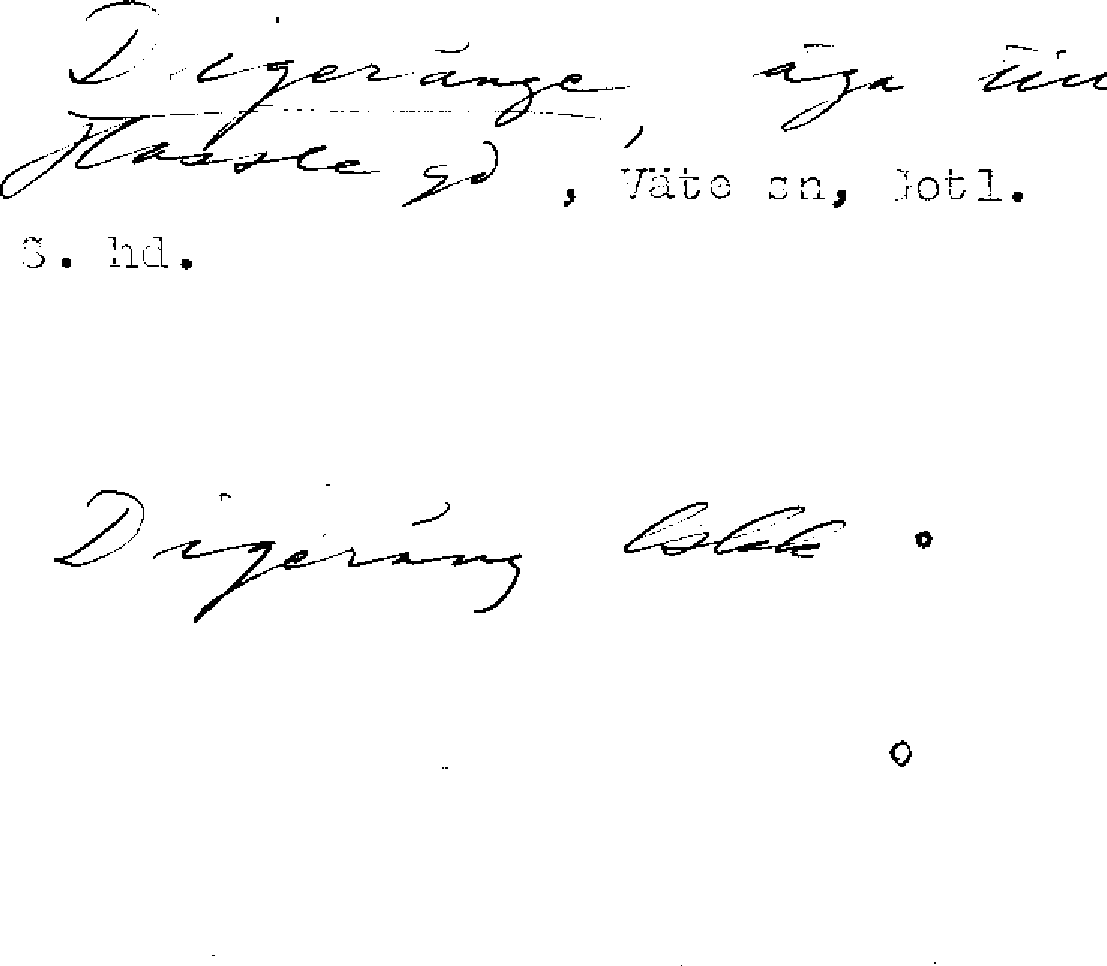 Digeränge, äga till
Hassle gd, Väte sn, Gotl.
S. hd.
Digeräng lskk